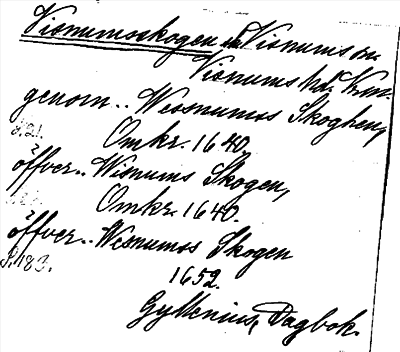 Visnumsskogen i Visnums sn.
Visnums hd. Vrm.
genom .. Wessnumss Skoghen,
s. 21. Omkr. 1640.
öffver .. Wisnums Skogen,
Omkr. 1640.
öffver .. Wesnumss Skogen
S. 183. 1652.
Gyllenius, Dagbok.